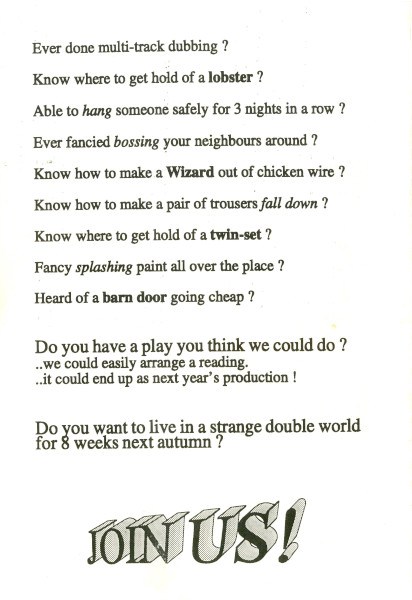 Ever done multi-track dubbing ?
Know where to get hold of a lobster ?
Able to hang someone safely for 3 nights in a row ?
Ever fancied bossing your neighbours around ?
Know how to make a Wizard out of chicken wire ?
Know how to make a pair of trousers fall down ?
Know where to get hold of a twin-set ?
Fancy splashing paint all over the place ?
Heard of a barn door going cheap ?
Do you have a play you think we could do ?
..we could easily arrange a reading.
..it could end up as next year's production !
Do you want to live in a strange double world
for 8 weeks next autumn ?
JOIN US!